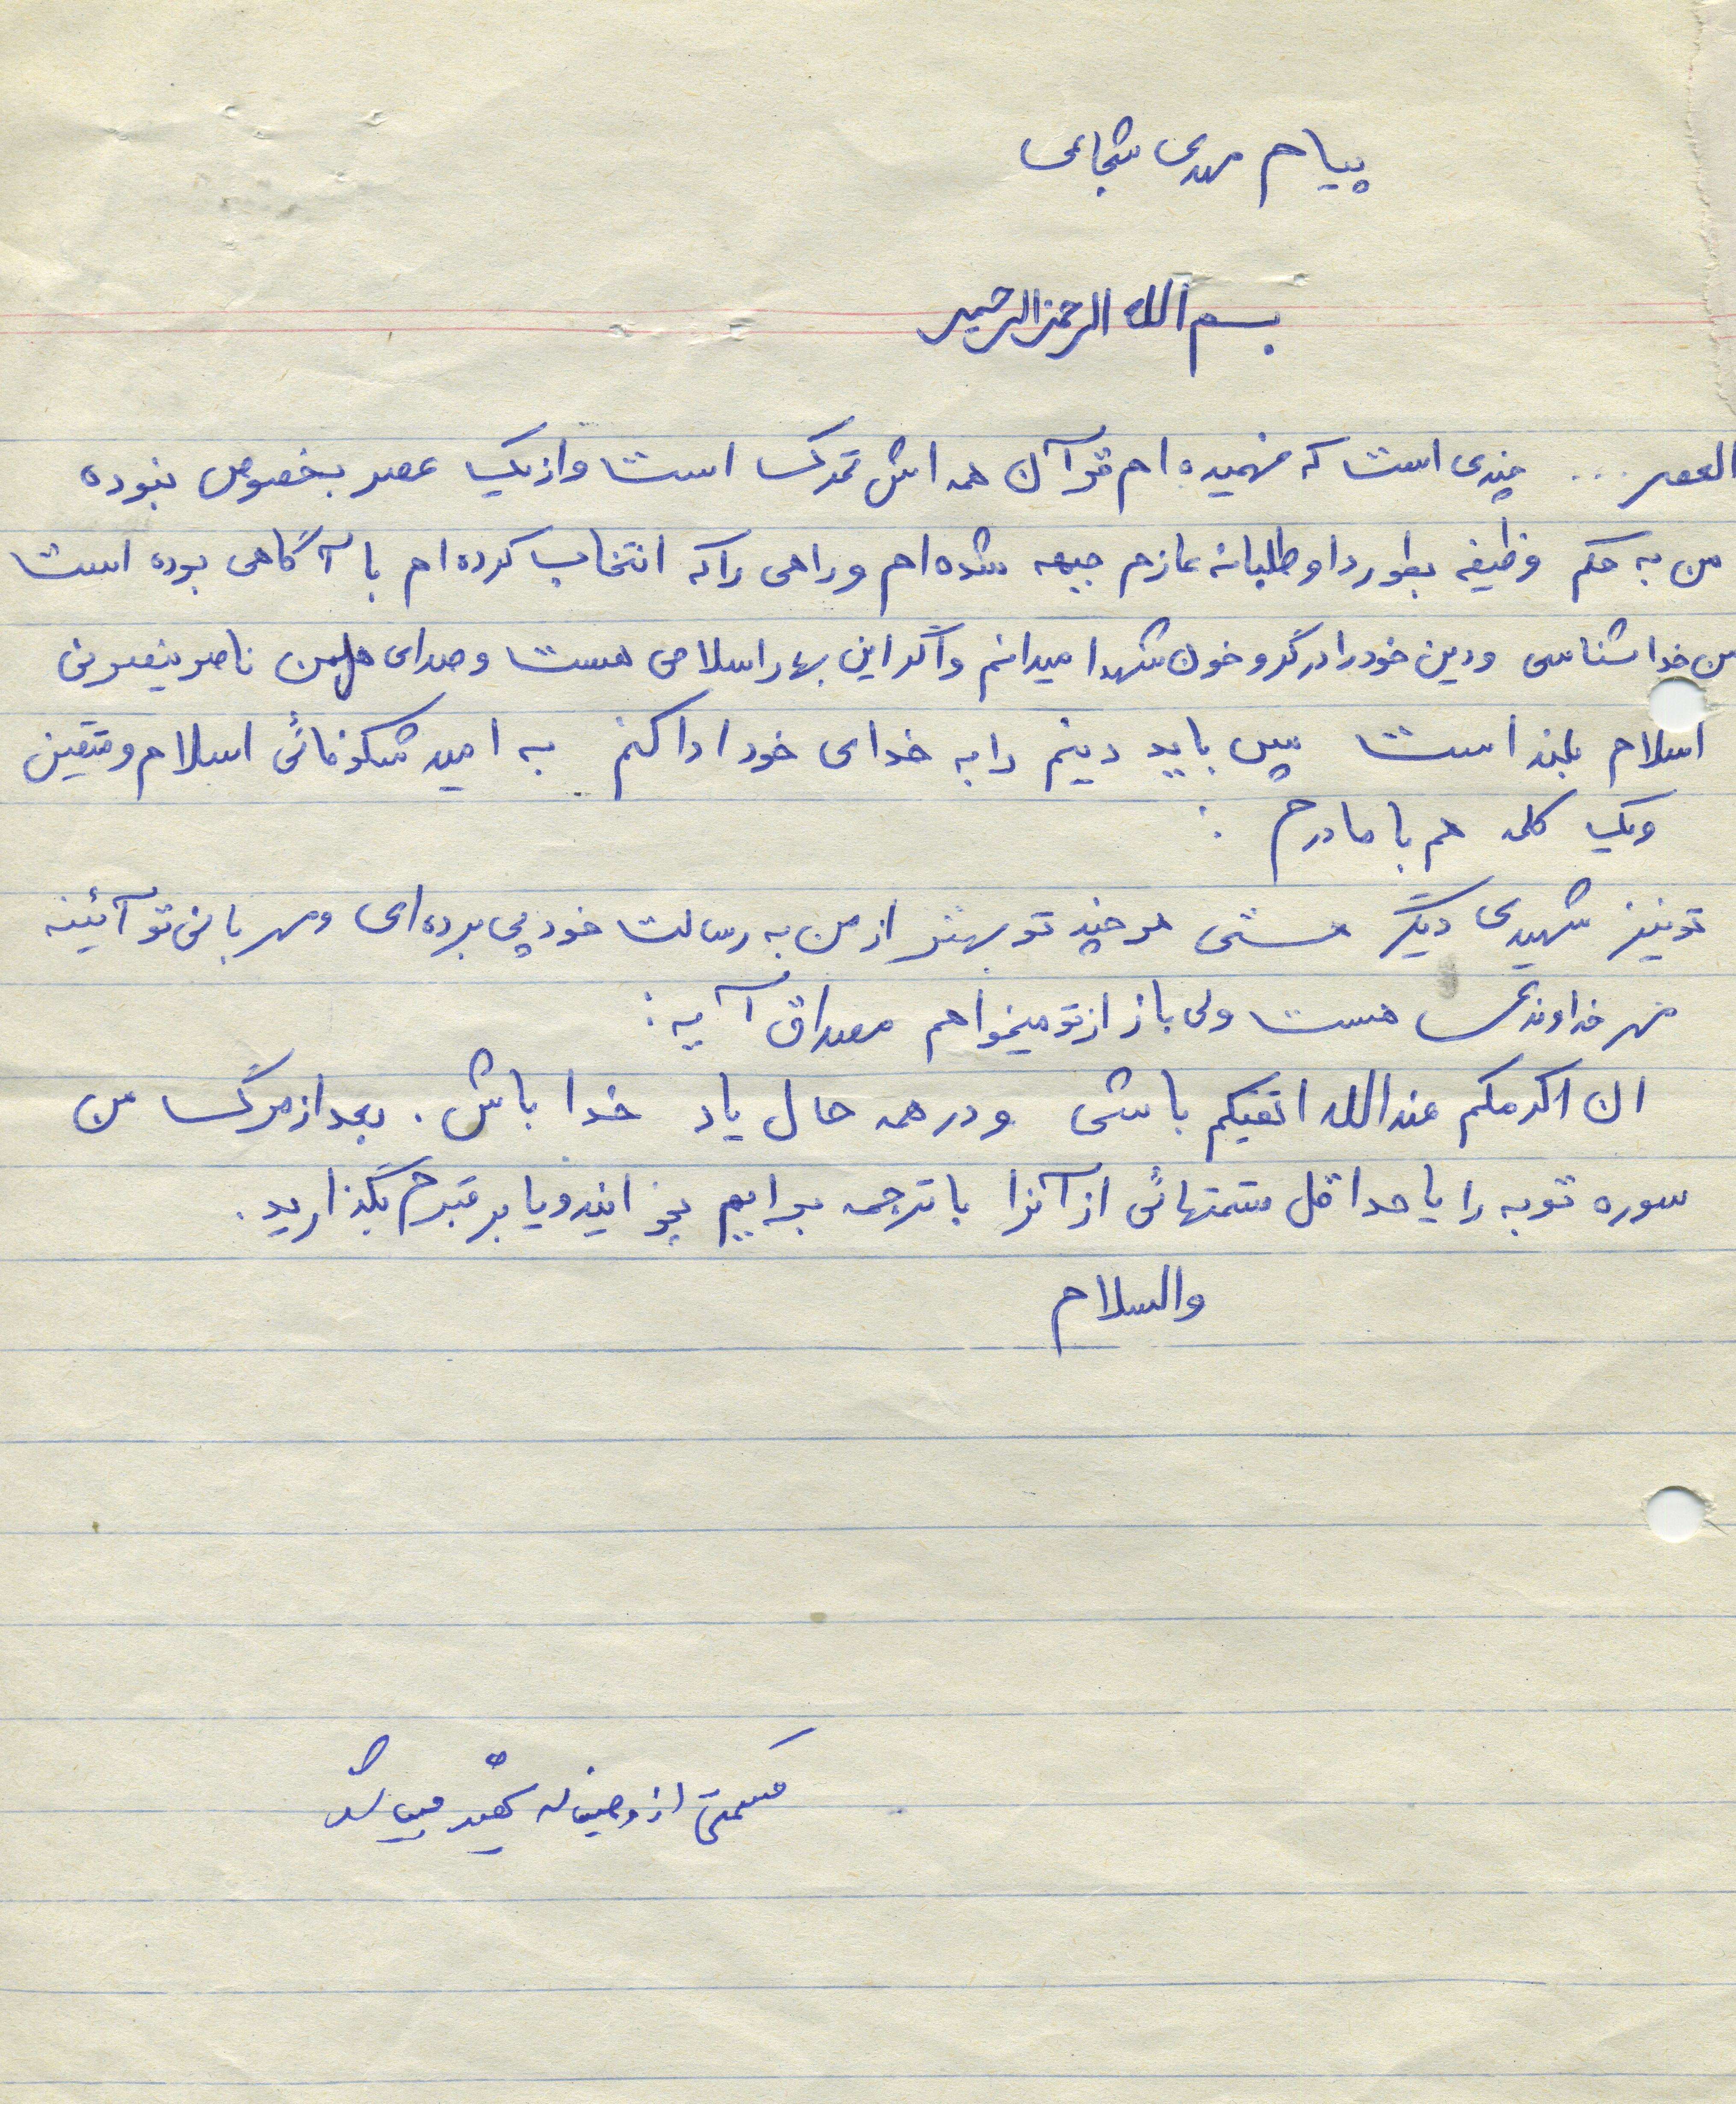 پیام مهدی شجاعی
بسم الله الرحمن الرحیم
العصر ... چندی است که فهمیده ام قرآن همه اش تحرک است و از یک عصر بخصوص نبوده
من به حکم وظیفه بطور داوطلبانه عازم جبهه شده ام و راهی را که انتخاب کرده ام با آگاهی بوده است
من خداشناسی و دین خود را در گرو خون شهدا میدانم و اگر این بهار اسلامی هست و صدای هل من ناصر ینصرنی
اسلام بلند است پس باید دینم را به خدای خود ادا کنم به امید شکوفائی اسلام و متقین
ویک کلمه هم با مادرم :
تو نیز شهیدی دیگر هستی هر چند تو بهتر از من به رسالت خود پی برده ای و مهربانی تو آئینه
مهر خداوندی هست ولی باز از تو میخواهم مصداق آیه :
ان اکرمکم عندالله اتقیکم باشی و در همه حال یاد خدا باش . بعد از مرگ من
سوره توبه را یا حداقل قسمتهائی از آنرا با ترجمه برایم بخوانید و یا بر قبرم بگذارید .
والسلام
قسمتی از وصیتنامه شهید میباشد